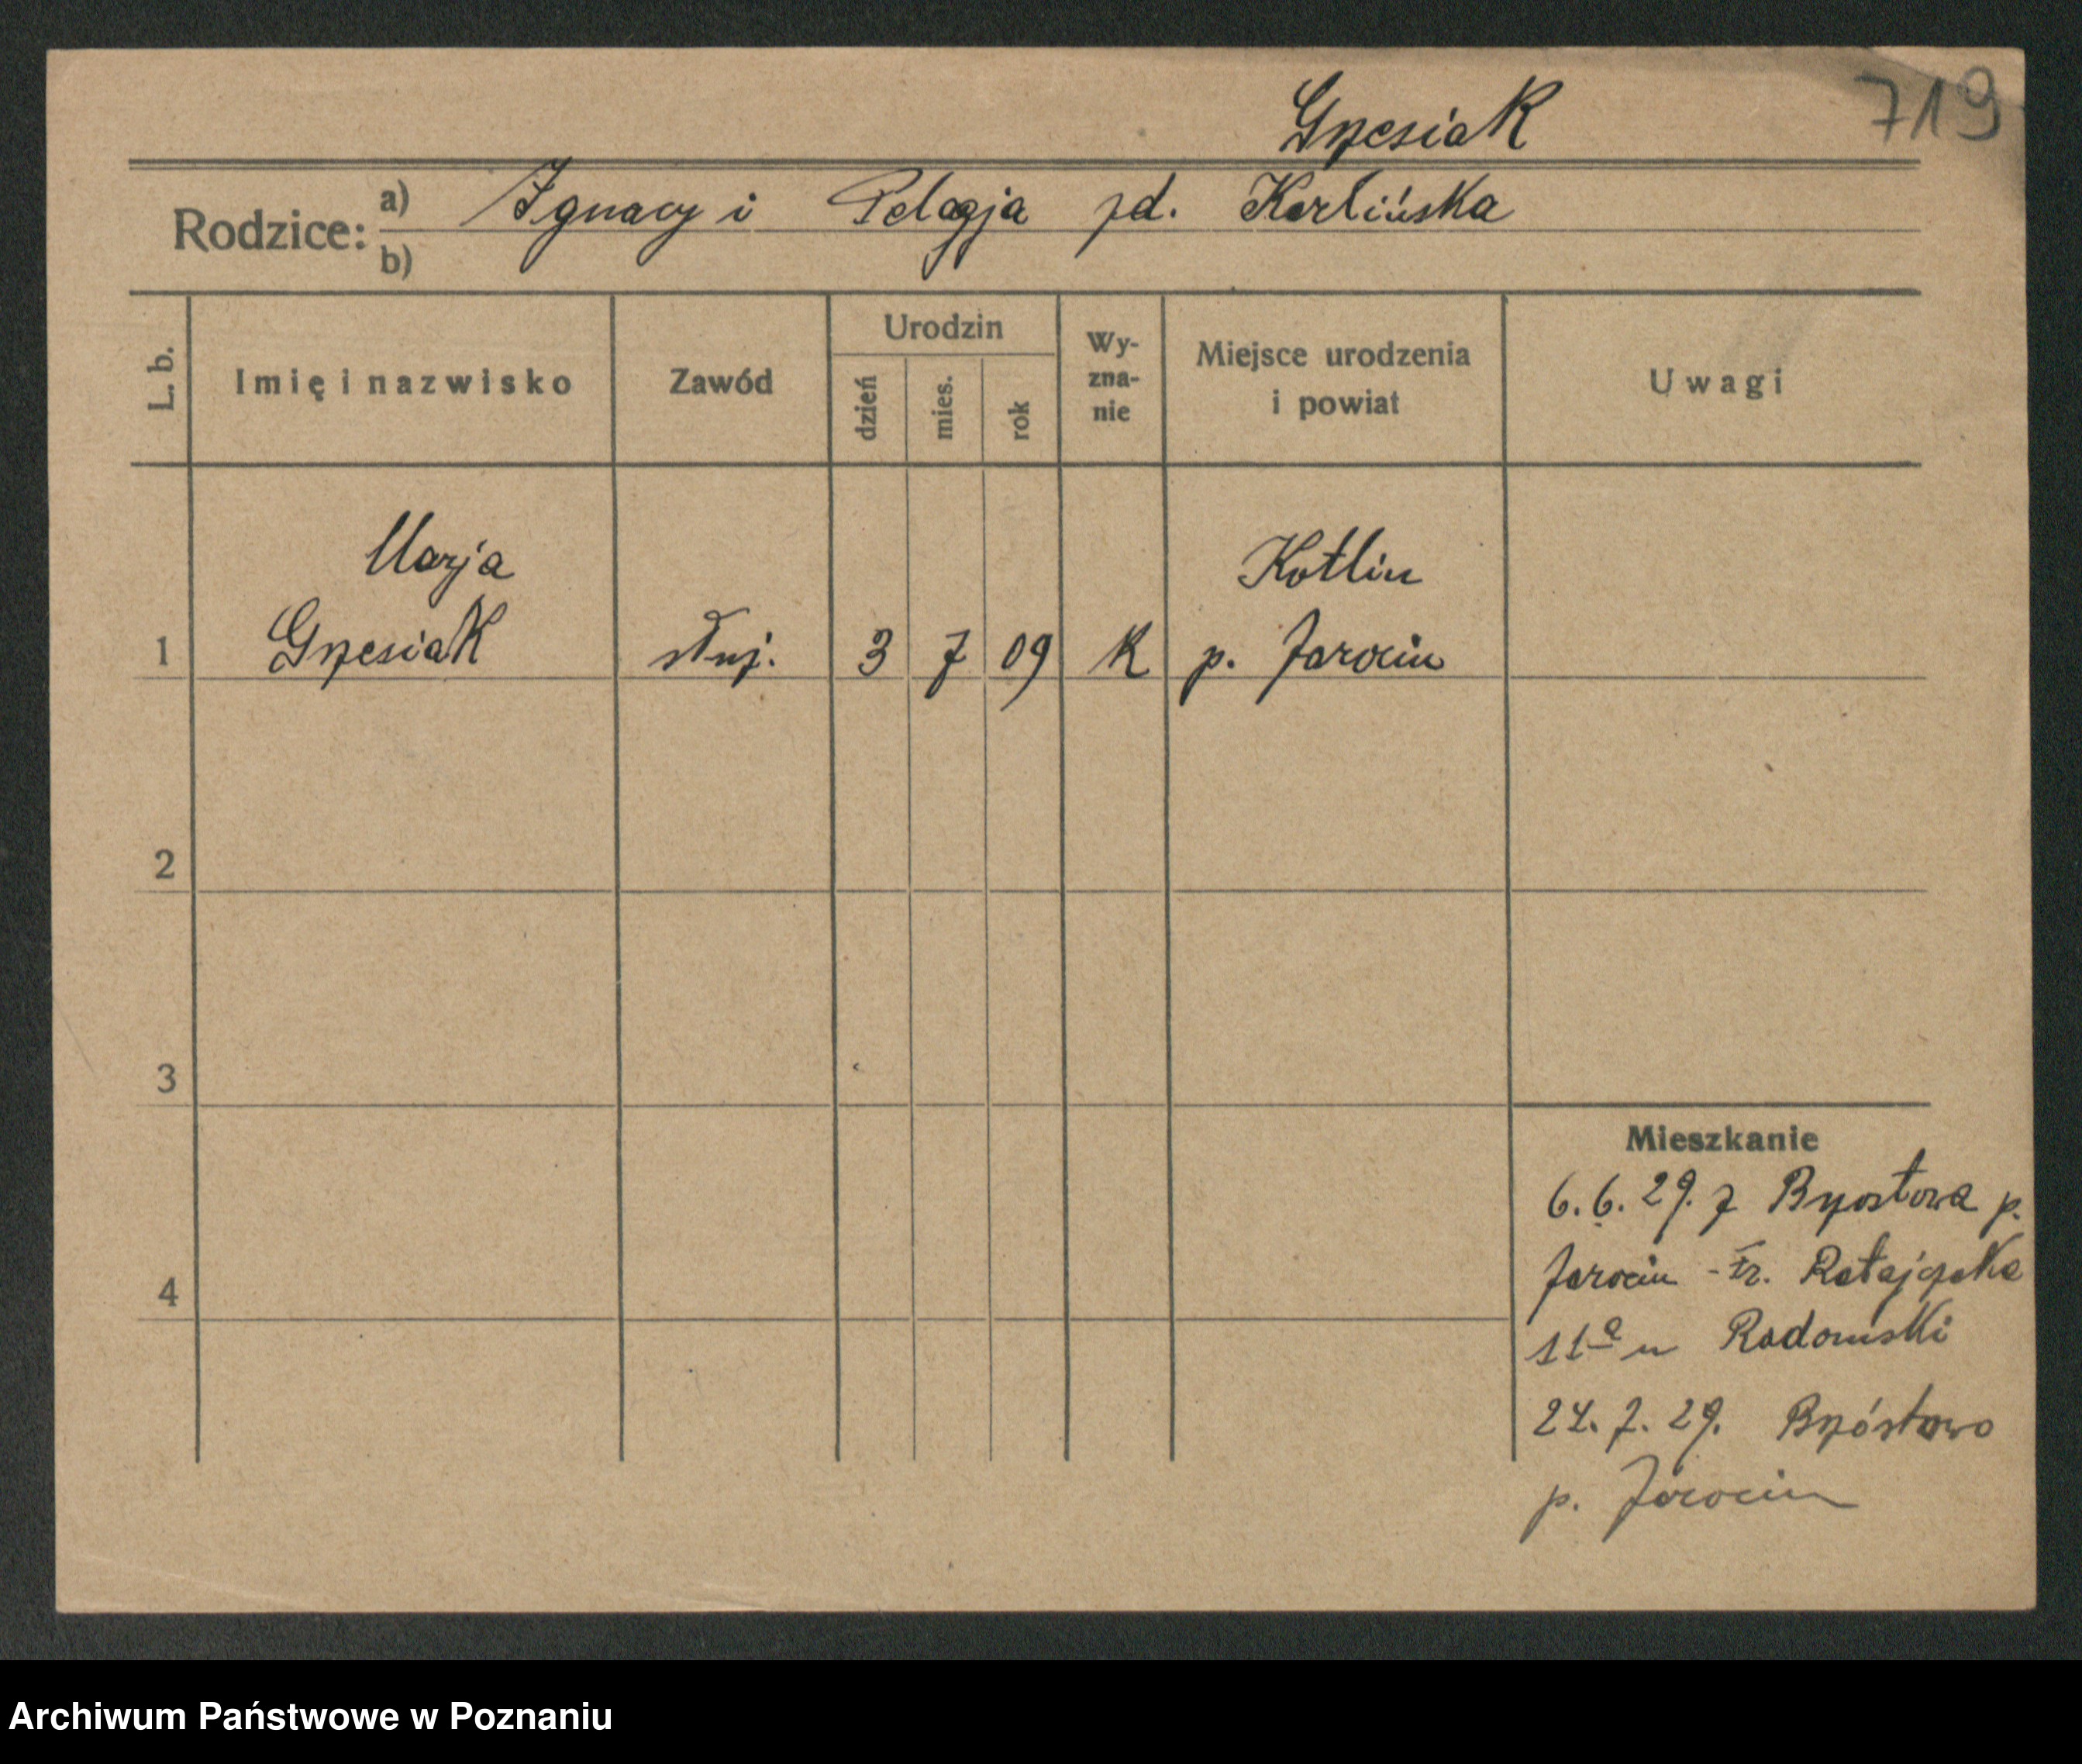 719
Grzesiak
Rodzice: a) Ignacy i Pelagja zd. Karlińska
b)
L. b.
Imię i nazwisko
Zawód
Urodzin
dzień
mies.
rok
Wy-
zna-
nie
Miejsce urodzenia
i powiat
Uwagi
Marja
Kotlin
1 Grzesiak służ. 3 7 09 K p. Jarocin
2
3
4
Mieszkanie
6.6.29. z Brzostowa p.
Jarocin - Fr. Ratajczaka
11a u Radomski
24.7.29. Brzóstowo
p. Jarocin
Archiwum Państwowe w Poznaniu